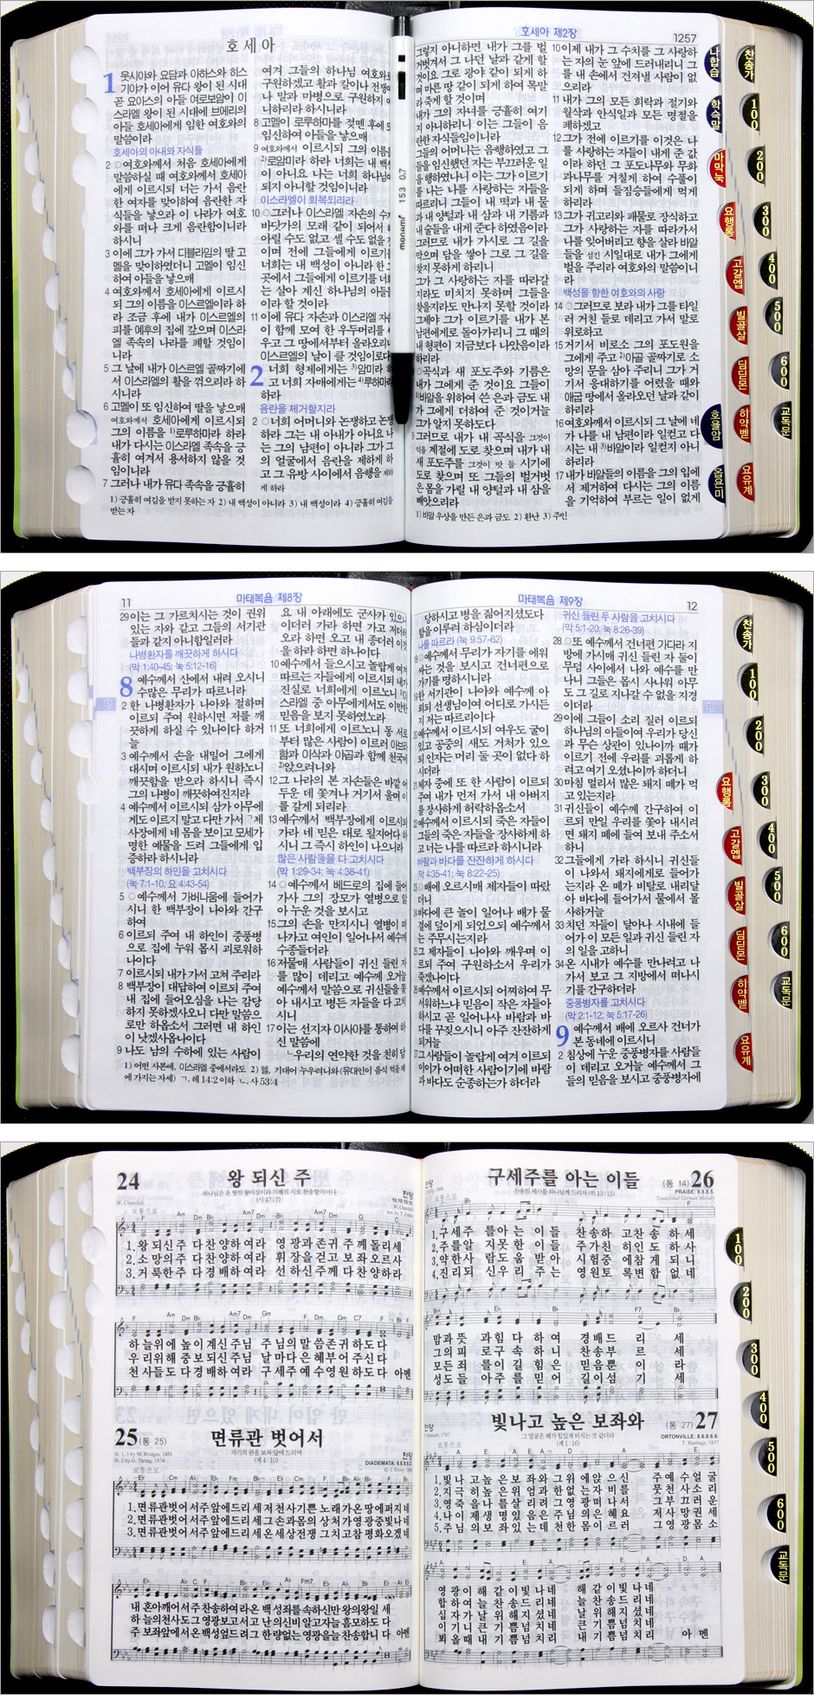 호세아
1 웃시야와 요담과 아하스와 히스
기야가 이어 유다 왕이 된 시대
곧 요아스의 아들 여로보암이 이
스라엘 왕이 된 시대에 브에리의
아들 호세아에게 임한 여호와의
말씀이라
호세아의 아내와 자식들
2 ○여호와께서 처음 호세아에게
말씀하실 때 여호와께서 호세아
에게 이르시되 너는 가서 음란
한 여자를 맞이하여 음란한 자
식들을 낳으라 이 나라가 여호
와를 떠나 크게 음란함이니라
하시니
3 이에 그가 가서 디블라임의 딸 고
멜을 맞이하였더니 고멜이 임신
하여 아들을 낳으매
4 여호와께서 호세아에게 이르시
되 그의 이름을 이스르엘이라 하
라 조금 후에 내가 이스르엘의
피를 예후의 집에 갚으며 이스라
엘 족속의 나라를 폐할 것임이
니라
5 그 날에 내가 이스르엘 골짜기에
서 이스라엘의 활을 꺾으리라 하
시니라
6 고멜이 또 임신하여 딸을 낳으매
여호와께서 호세아에게 이르시되
그의 이름을 1)로루하마라 하라
내가 다시는 이스라엘 족속을 긍
휼히 여겨서 용서하지 않을 것
임이니라
7 그러나 내가 유다 족속을 긍휼히
여겨 그들의 하나님 여호와로
구원하겠고 활과 칼이나 전쟁이
나 말과 마병으로 구원하지 아
니하리라 하시니라
8 고멜이 로루하마를 젖뗀 후에 또
임신하여 아들을 낳으매
9 여호와께서 이르시되 그의 이름을
2)로암미라 하라 너희는 내 백성
이 아니요 나는 너희 하나님이
되지 아니할 것임이니라
이스라엘이 회복되리라
10 ○그러나 이스라엘 자손의 수가
바닷가의 모래 같이 되어서 헤
아릴 수도 없고 셀 수도 없을 것
이며 전에 그들에게 이르기를
너희는 내 백성이 아니라 한 그
곳에서 그들에게 이르기를 너희
는 살아 계신 하나님의 아들들
이라 할 것이라
11 이에 유다 자손과 이스라엘 자손
이 함께 모여 한 우두머리를 세
우고 그 땅에서부터 올라오리니
이스르엘의 날이 클 것임이로다
2 너희 형제에게는 3)암미라 하
고 너희 자매에게는 4)루하마라
하라
음란을 제거할지라
2 ○너희 어머니와 논쟁하고 논쟁
하라 그는 내 아내가 아니요 나
는 그의 남편이 아니라 그가 그
의 얼굴에서 음란을 제하게 하
고 그 유방 사이에서 음행을 제하
게 하라
1) 긍휼히 여김을 받지 못하는 자 2) 내 백성이 아니라 3) 내 백성이라 4) 긍휼히 여김을
받는 자
monami 153 0.7
호세아 제2장
1257
그렇지 아니하면 내가 그를 벌
거벗겨서 그 나던 날과 같게 할
것이요 그로 광야 같이 되게 하
며 마른 땅 같이 되게 하여 목말
라 죽게 할 것이며
내가 그의 자녀를 긍휼히 여기
지 아니하리니 이는 그들이 음
란한 자식들임이니라
그들의 어머니는 음행하였고 그
들을 임신했던 자는 부끄러운 일
을 행하였나니 이는 그가 이르기
를 나는 나를 사랑하는 자들을
따르리니 그들이 내 떡과 내 물
과 내 양털과 내 삼과 내 기름과
내 술들을 내게 준다 하였음이라
그러므로 내가 가시로 그 길을
막으며 담을 쌓아 그로 그 길을
찾지 못하게 하리니
그가 그 사랑하는 자를 따라갈
지라도 미치지 못하며 그들을
찾을지라도 만나지 못할 것이라
그제야 그가 이르기를 내가 본
남편에게로 돌아가리니 그 때의
내 형편이 지금보다 나았음이라
하리라
곡식과 새 포도주와 기름은
내가 그에게 준 것이요 그들이
바알을 위하여 쓴 은과 금도 내
가 그에게 더하여 준 것이거늘
그가 알지 못하도다
그러므로 내가 내 곡식을 그것이
익을 계절에 도로 찾으며 내가 내
새 포도주를 그것이 맛 들 시기에
도로 찾으며 또 그들의 벌거벗
은 몸을 가릴 내 양털과 내 삼을
빼앗으리라
10 이제 내가 그 수치를 그 사랑하
는 자의 눈 앞에 드러내리니 그
를 내 손에서 건져낼 사람이 없
으리라
11 내가 그의 모든 희락과 절기와
월삭과 안식일과 모든 명절을
폐하겠고
12 그가 전에 이르기를 이것은 나
를 사랑하는 자들이 내게 준 값
이라 하던 그 포도나무와 무화
과나무를 거칠게 하여 수풀이
되게 하며 들짐승들에게 먹게
하리라
13 그가 귀고리와 패물로 장식하고
그가 사랑하는 자를 따라가서
나를 잊어버리고 향을 살라 바알
들을 섬긴 시일대로 내가 그에게
벌을 주리라 여호와의 말씀이니
라
백성을 향한 여호와의 사랑
14 ○그러므로 보라 내가 그를 타일
러 거친 들로 데리고 가서 말로
위로하고
15 거기서 비로소 그의 포도원을
그에게 주고 2)아골 골짜기로 소
망의 문을 삼아 주리니 그가 거
기서 응대하기를 어렸을 때와
애굽 땅에서 올라오던 날과 같이
하리라
16 여호와께서 이르시되 그 날에 네
가 나를 내 남편이라 일컫고 다
시는 내 3)바알이라 일컫지 아니
하리라
17 내가 바알들의 이름을 그의 입에
서 제거하여 다시는 그의 이름
을 기억하여 부르는 일이 없게
1) 바알 우상을 만든 은과 금도 2) 환난 3) 주인
나합습
학슥말
마막눅
요행롬
고갈엡
빌골살
딤딛몬
호욜암
히약벧
옵욘미
요유계
찬송가
100
200
300
400
500
600
교독문
11
마태복음 제8장
29 이는 그 가르치시는 것이 권위
있는 자와 같고 그들의 서기관
들과 같지 아니함일러라
나병환자를 깨끗하게 하시다
(막 1:40-45; 눅 5:12-16)
8 예수께서 산에서 내려 오시니
수많은 무리가 따르니라
2 한 나병환자가 나아와 절하며
이르되 주여 원하시면 저를 깨
끗하게 하실 수 있나이다 하거
늘
3 예수께서 손을 내밀어 그에게
대시며 이르시되 내가 원하노니
깨끗함을 받으라 하시니 즉시
그의 나병이 깨끗하여진지라
4 예수께서 이르시되 삼가 아무에
게도 이르지 말고 다만 가서 1)제
사장에게 네 몸을 보이고 모세가
명한 예물을 드려 그들에게 입
증하라 하시니라
백부장의 하인을 고치시다
(눅 7:1-10; 요 4:43-54)
5 ○예수께서 가버나움에 들어가
시니 한 백부장이 나아와 간구
하여
6 이르되 주여 내 하인이 중풍병
으로 집에 누워 몹시 괴로워하
나이다
7 이르시되 내가 가서 고쳐 주리라
8 백부장이 대답하여 이르되 주여
내 집에 들어오심을 나는 감당
하지 못하겠사오니 다만 말씀으
로만 하옵소서 그러면 내 하인
이 낫겠사옵나이다
9 나도 남의 수하에 있는 사람이
요 내 아래에도 군사가 있으니
이더러 가라 하면 가고 저더러
오라 하면 오고 내 종더러 이것
을 하라 하면 하나이다
10 예수께서 들으시고 놀랍게 여겨
따르는 자들에게 이르시되 내가
진실로 너희에게 이르노니 이
스라엘 중 아무에게서도 이만한
믿음을 보지 못하였노라
11 또 너희에게 이르노니 동 서로
부터 많은 사람이 이르러 아브라
함과 이삭과 야곱과 함께 천국에
앉으려니와
12 그 나라의 본 자손들은 바깥 어
두운 데 쫓겨나 거기서 울며 이
를 갈게 되리라
13 예수께서 백부장에게 이르시되
가라 네 믿은 대로 될지어다 하
시니 그 즉시 하인이 나으니라
많은 사람들을 다 고치시다
(막 1:29-34; 눅 4:38-41)
14 ○예수께서 베드로의 집에 들어
가사 그의 장모가 열병으로 앓
아 누운 것을 보시고
15 그의 손을 만지시니 열병이 떠
나가고 여인이 일어나서 예수께
수종들더라
16 저물매 사람들이 귀신 들린 자
를 많이 데리고 예수께 오거늘
예수께서 말씀으로 귀신들을 쫓
아 내시고 병든 자들을 다 고치
시니
17 이는 선지자 이사야를 통하여 하
신 말씀에
우리의 연약한 것을 친히 담
마태복음 제9장
12
당하시고 병을 짊어지셨도다
함을 이루려 하심이더라
나를 따르라 (눅 9:57-62)
18 ○예수께서 무리가 자기를 에워
싸는 것을 보시고 건너편으로
가기를 명하시니라
한 서기관이 나아와 예수께 아
뢰되 선생님이여 어디로 가시든
지 저는 따르리이다
예수께서 이르시되 여우도 굴이
있고 공중의 새도 거처가 있으
되 인자는 머리 둘 곳이 없다 하
시더라
제자 중에 또 한 사람이 이르되
주여 내가 먼저 가서 내 아버지
를 장사하게 허락하옵소서
예수께서 이르시되 죽은 자들이
그들의 죽은 자들을 장사하게 하
고 너는 나를 따르라 하시니라
바람과 바다를 잔잔하게 하시다
(막 4:35-41; 눅 8:22-25)
배에 오르시매 제자들이 따랐
더니
바다에 큰 놀이 일어나 배가 물
결에 덮이게 되었으되 예수께서
는 주무시는지라
그 제자들이 나아와 깨우며 이
르되 주여 구원하소서 우리가
죽겠나이다
예수께서 이르시되 어찌하여 무
서워하느냐 믿음이 작은 자들아
하시고 곧 일어나사 바람과 바
다를 꾸짖으시니 아주 잔잔하게
되거늘
그 사람들이 놀랍게 여겨 이르되
이이가 어떠한 사람이기에 바람
과 바다도 순종하는가 하더라
귀신 들린 두 사람을 고치시다
(막 5:1-20; 눅 8:26-39)
28 ○또 예수께서 건너편 가다라 지
방에 가시매 귀신 들린 자 둘이
무덤 사이에서 나와 예수를 만
나니 그들은 몹시 사나워 아무
도 그 길로 지나갈 수 없을 지경
이더라
29 이에 그들이 소리 질러 이르되
하나님의 아들이여 우리가 당신
과 무슨 상관이 있나이까 때가
이르기 전에 우리를 괴롭게 하
려고 여기 오셨나이까 하더니
30 마침 멀리서 많은 돼지 떼가 먹
고 있는지라
31 귀신들이 예수께 간구하여 이
르되 만일 우리를 쫓아 내시려
면 돼지 떼에 들여 보내 주소서
하니
32 그들에게 가라 하시니 귀신들
이 나와서 돼지에게로 들어가
는지라 온 떼가 비탈로 내리달
아 바다에 들어가서 물에서 몰
사하거늘
33 치던 자들이 달아나 시내에 들
어가 이 모든 일과 귀신 들린 자
의 일을 고하니
34 온 시내가 예수를 만나려고 나
가서 보고 그 지방에서 떠나시
기를 간구하더라
중풍병자를 고치시다
(막 2:1-12; 눅 5:17-26)
9 예수께서 배에 오르사 건너가
본 동네에 이르시니
2 침상에 누운 중풍병자를 사람들
이 데리고 오거늘 예수께서 그
들의 믿음을 보시고 중풍병자에
요행롬
고갈엡
빌골살
딤딛몬
히약벧
요유계
찬송가
100
200
300
400
500
600
교독문
24 왕 되신 주
1. 왕 되신 주 다 찬양하여라 영광과 존귀 주께 돌리세
2. 소망의 주 다 찬양하여라 휘장을 걷고 보좌 오르사
3. 거룩한 주 다 경배하여라 선하신 주께 다 찬양하라
하늘 위에 높이 계신 주님 주님의 말씀 존귀하도다
우리 위해 중보되신 주님 날마다 은혜 부어 주신다
천사들도 다 경배하여라 구세주 예수 영원하도다 아멘
25 (통 25) 면류관 벗어서
DIADEMATA
1. 면류관 벗어서 주 앞에 드리세 저 천사 기쁜 노래가 온 땅에 퍼지네
2. 면류관 벗어서 주 앞에 드리세 그 손과 몸의 상처가 영광 중 빛나네
3. 면류관 벗어서 주 앞에 드리세 온 세상 전쟁 그치고 참 평화 오겠네
내 혼아 깨어서 주 찬송하여라 온 백성 죄를 속하신 만왕의 왕일세
하늘의 천사도 그 영광 보고서 고난의 신비 알고자 늘 흠모하도다
주 보좌 앞에서 온 백성 엎드려 그 한량없는 영광을 늘 찬송합니다 아멘
구세주를 아는 이들 (통 14) 26
1. 구세주를 아는 이들 찬송하고 찬송하세
2. 주를 알지 못한 이들 주가 친히 인도하사
3. 약한 사람 도움 받아 시험 중에 참게 되니
4. 진리되신 우리 주는 영원토록 변함없네
맘과 뜻과 힘 다하여 경배드리세
그의 피로 구속하니 찬송부르세
모든 죄를 이길 힘은 믿음뿐이라
성도들아 주를 믿어 길이 섬기세
빛나고 높은 보좌와 (통 27) 27
ORTONVILLE
1. 빛나고 높은 보좌와 그 위에 앉으신 주 예수 얼굴
2. 지극히 높은 위엄과 한없는 자비를 뭇 천사 소리
3. 영 죽을 나를 살리려 그 영광 떠나서 그 부끄러운
4. 나 이제 생명 있음은 주님의 은혜요 저 사망 권세
5. 주님의 보좌 있는 데 천한 몸 이르러 그 영광 몸소
영광이 해같이 빛나네 해같이 빛나네
합하여 늘 찬송드리네 늘 찬송드리네
십자가 날 위해 지셨네 날 위해 지셨네
이기니 큰 기쁨 넘치네 큰 기쁨 넘치네
뵈올 때 내 기쁨 넘치리 내 기쁨 넘치리 아멘
100
200
300
400
500
600
교독문